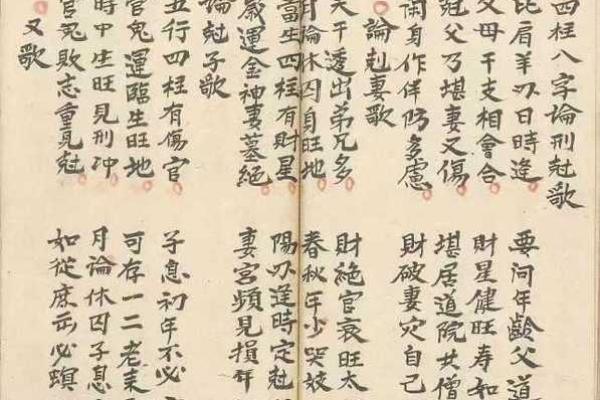 四柱八字論刑尅歌
比肩羊刃日時逢 要问年齡父道
父母干支相會合 財星健旺寿如
尅父乃堪妻又傷 堪居道院共僧
閑身作伴防多慮 財破妻灾自己
論尅妻歌
天干透出弟兄多 財絶官衰旺太
月論休囚自旺地 春秋年少哭妓
當生四柱有財星 陽刃逢時定尅
歲運金神妻墓絶 妻宫頻見損年
論尅子歌
五行四柱有傷官 子息初年不必
官鬼運臨生旺地 可存一二老来
時中生旺見刑冲 月論休囚子息
官鬼敗志重見尅 如從庶出必螟
又歌